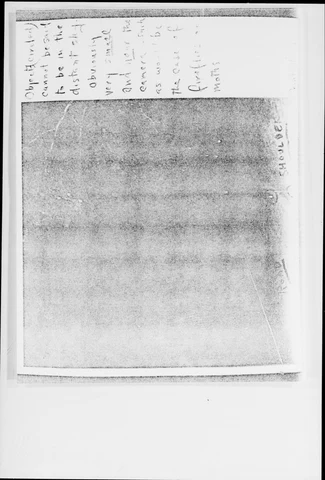 Object (circled)
cannot be said
to be in the
distant sky
obviously
very small
and near the
camera
as would be
the case of
fireflies or
moths
SHOULDER